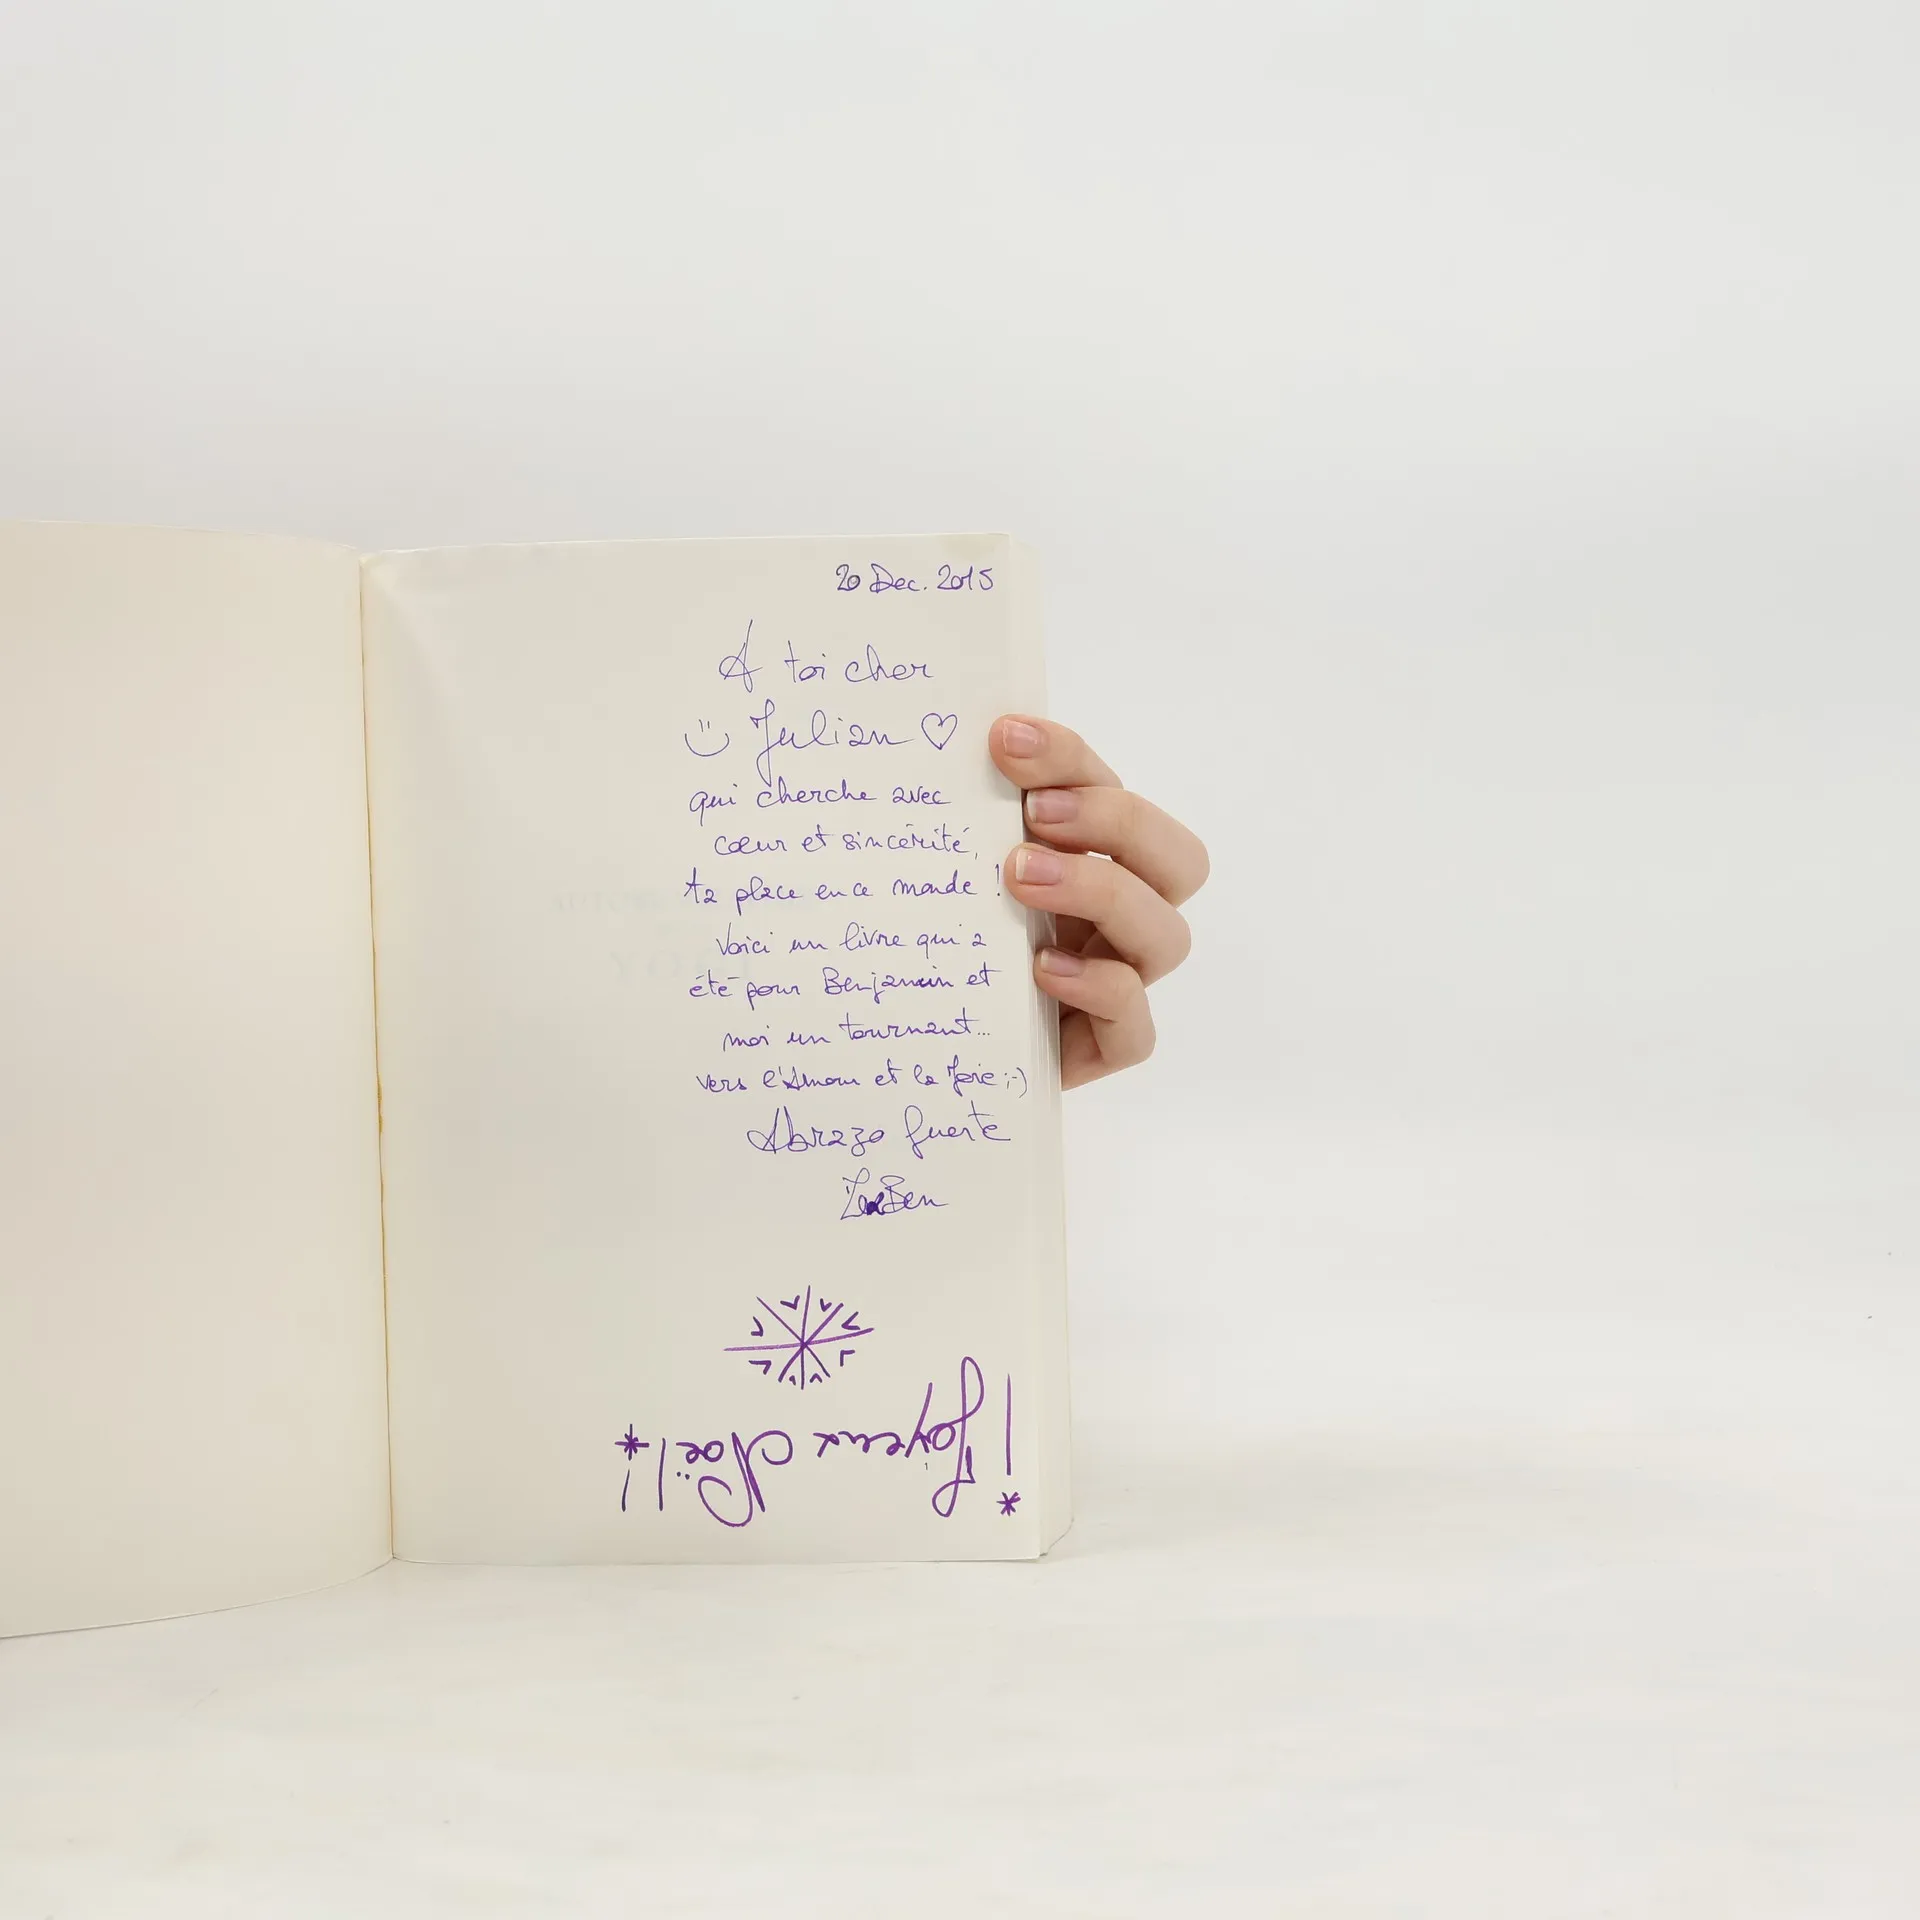 20 Dec. 2015
A toi cher
Julian ♡
qui cherche avec
cœur et sincérité,
ta place en ce monde !
Voici un livre qui a
été pour Benjamin et
moi un tournant...
vers l'Amour et la Joie ;-)
Abrazo fuerte
¡Joyeux Noël!